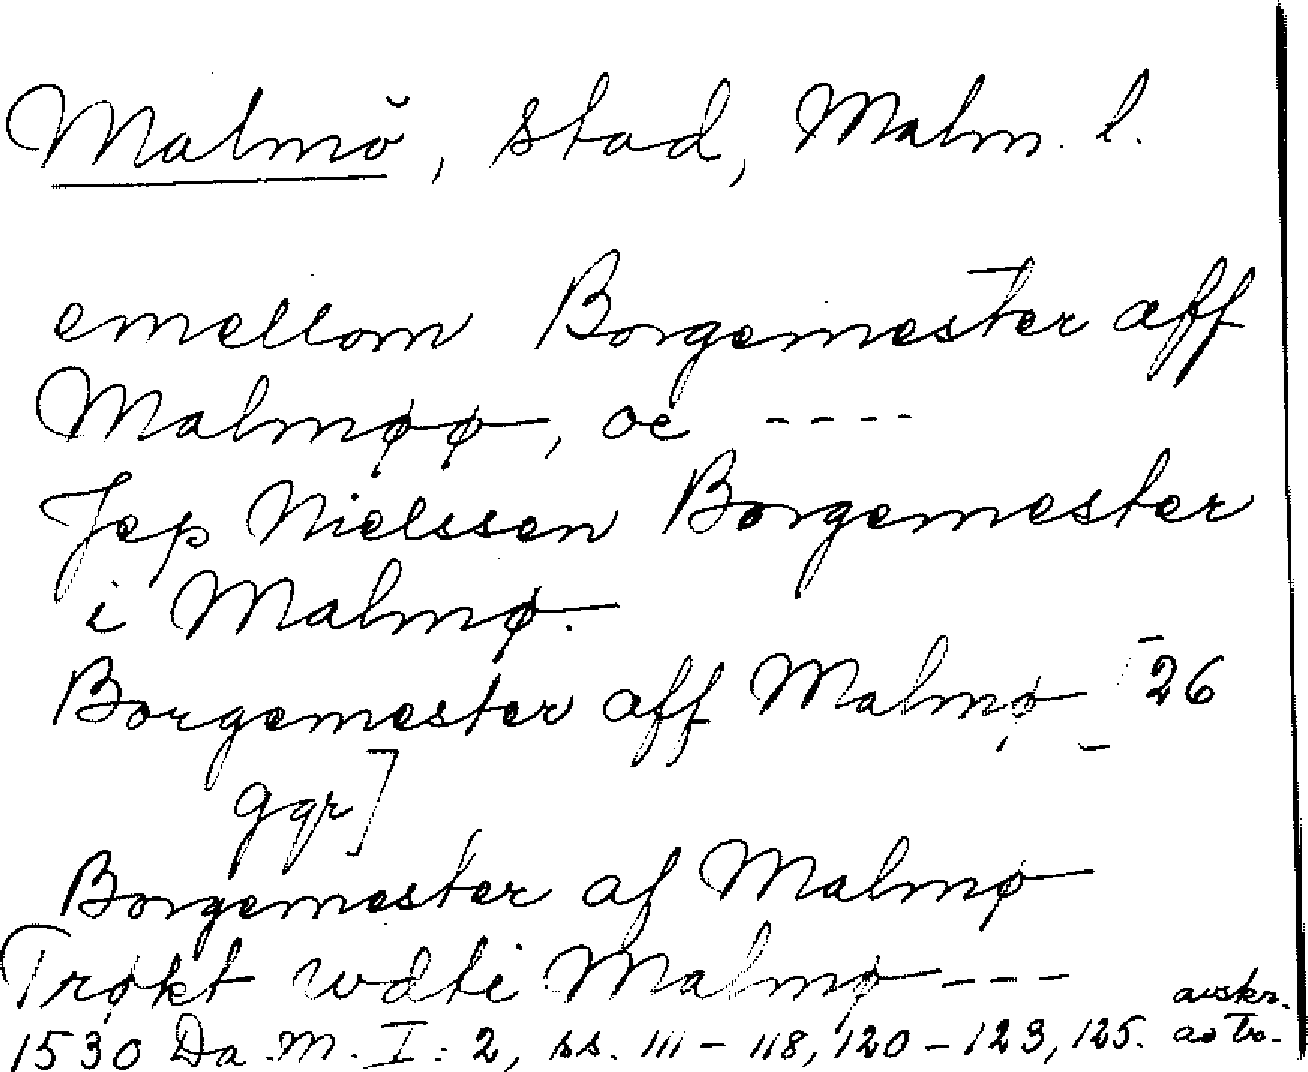 Malmö, stad, Malm. l.
emellom Borgemester aff
Malmøø, oc ----
Jep Nielssen Borgemester
i Malmø.
Borgemester aff Malmø - 26
ggr]
Borgemester af Malmø
Trøkt wdti Malmø ---
avskr.
1530 Da. M. I: 2, ss. 111-118, 120-123, 125.